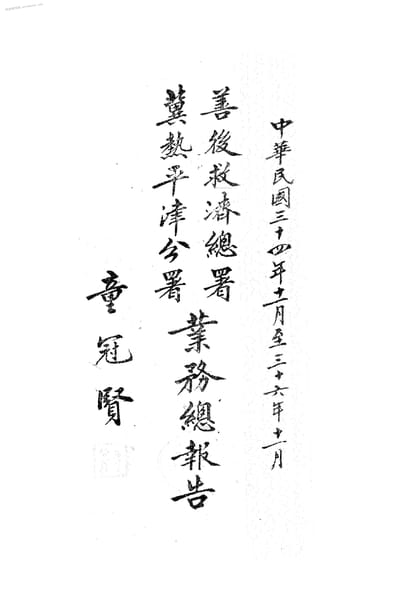 中華民國三十四年十一月至三十六年十一月
善後救濟總署
冀熱平津分署
業務總報告
童冠賢